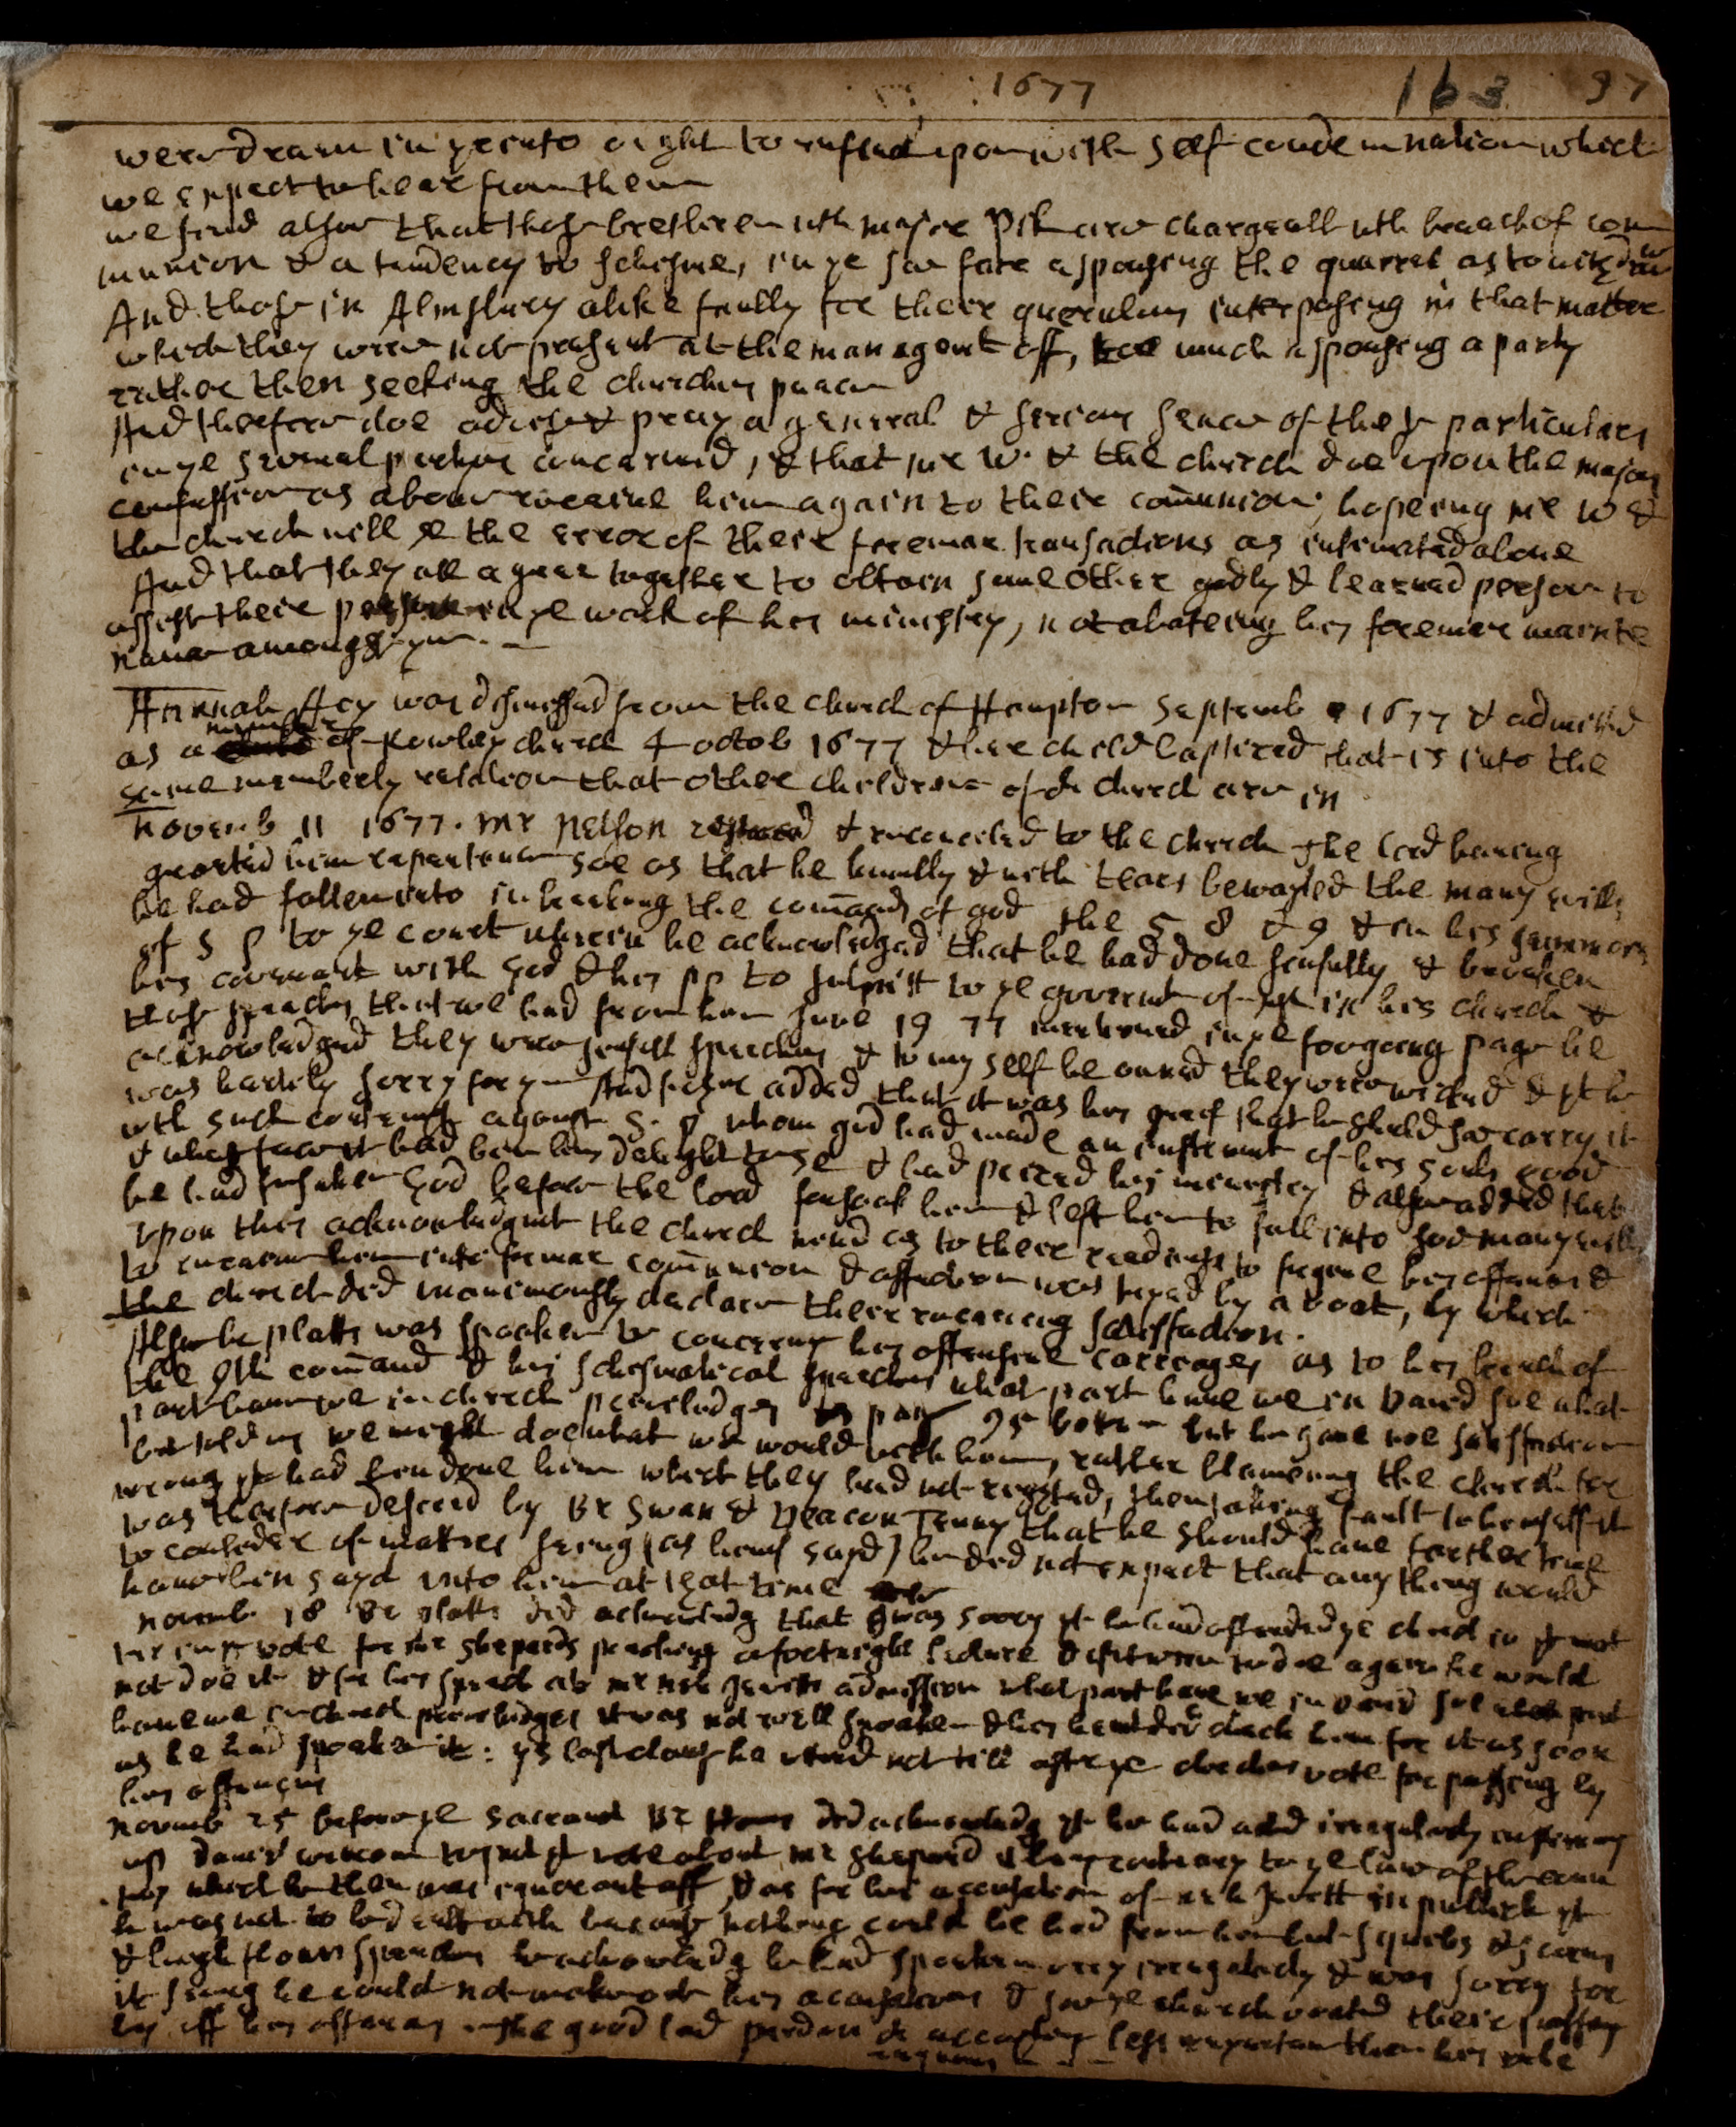 1677 163 97
were drawn in yrunto ought to reflect upon with self condemnation which
we expect to hear from them
we find alsoe that those brethren with major Pik are chargeall wth breach of com
munion & a tendency to schisme, in ye soe farr aspousing the quarrel as to withdraw
And those in Almsbury alike faulty for their querulous interposing in that matter
which they were not present at the managemt off, too much aspousing a party
rather then seeking the churches peace
And therfore doe advise & pray a general & serious sence of these particulars
in ye several parties concerned, & that mr W. & the church doe upon the majors
confession as above receive him again to their comunion, hopeing mr W &
the church will se the error of their former transactions as intimated above
And that they all agree together to obtain some other godly & learned person to
assist their in ye work of his ministry, not abateing his former mainte
nance amongst ym.
Hannah Acy was dismissed from the church of Hampton Septemb 1677 & admitted
as a member of Rowley church 4 octob 1677 & her child baptized that is into the
same memberly relation that other children of ch church are in
Novemb 11 1677. mr Nelson & reconciled to the church the lord having
granted him repentance soe as that he humbly & with tears bewayled the many evills
he had fallen into in breaking the comands of god the 5 8 & 9 & in his
of S P to ye court wherin he acknowledged that he had done sinfully & broken
his covenant with God & his pp to submitt to ye governmt of in his church &
those speaches that we had from him June 19 77 mentioned in ye foregoing page he
acknowledged they were sinfull speeches & to my self he owned they were wicked & yt he
was hartily sorry for ym And further added that it was his greif that he should soe carry it
wth such contempt against S. P whom god had made an instrumt of his souls good
& whose had ben his delight & had prized his ministry & alsoe added that
he had forsaken God before the lord forsook him & left him to fall into soe many evills
upon this acknowledgmt the church mind as to their readiness to forgive his offences &
to receive him into former comunion & affection was tryed by a voat, by which
the church did unanimously declare their receiving satisfaction.
Alsoe br platts was spoken to concerning his offensive carriages as to his breach of
the 9th comand & his schismatical speeches what part have we in David soe what
part have we in church priviledges page 95 but he gave noe satisfaction
but told us we might doe what we would with him, rather blameing the church for
wrong yt had ben done him which they had not righted, then takeing fault to himself it
was therfore desired by Br Swan & Deacon Tenny that he should have further time
to consider of matters seing (as himself sayd) he did not expect that any thing would
have ben sayd unto him at that time
Novemb. 18 Br platts did acknowledg that he was sorry yt he had offended ye church in yt
vote for mr shepards preaching a fortnight lecture & if it were to doe again he would
not doe it & for his speech at mr Neh Jewetts admission what part have we in David soe what part
have we in church priviledges it was not well spoaken & his heart did check him for it as soon
as he had spoaken it: ys last clause he uttered not till after ye churches vote for passing by
his offences
Novemb 25 before ye sacramt Br did acknowledg yt he had acted irregularly
up David to yt vote about mr shepard it being contrary to ye law of
which he then was ignorant off, & as for his accusation of neh Jewett in publick yt
he was not to be dealt with because nothing could be had from him but squibs &
& high flown speeches he acknowledg he had spoaken very irregularly & was sorry for
it seing he could not make out his accusations & soe ye church voated their passing
by off his offences the good lord pardon